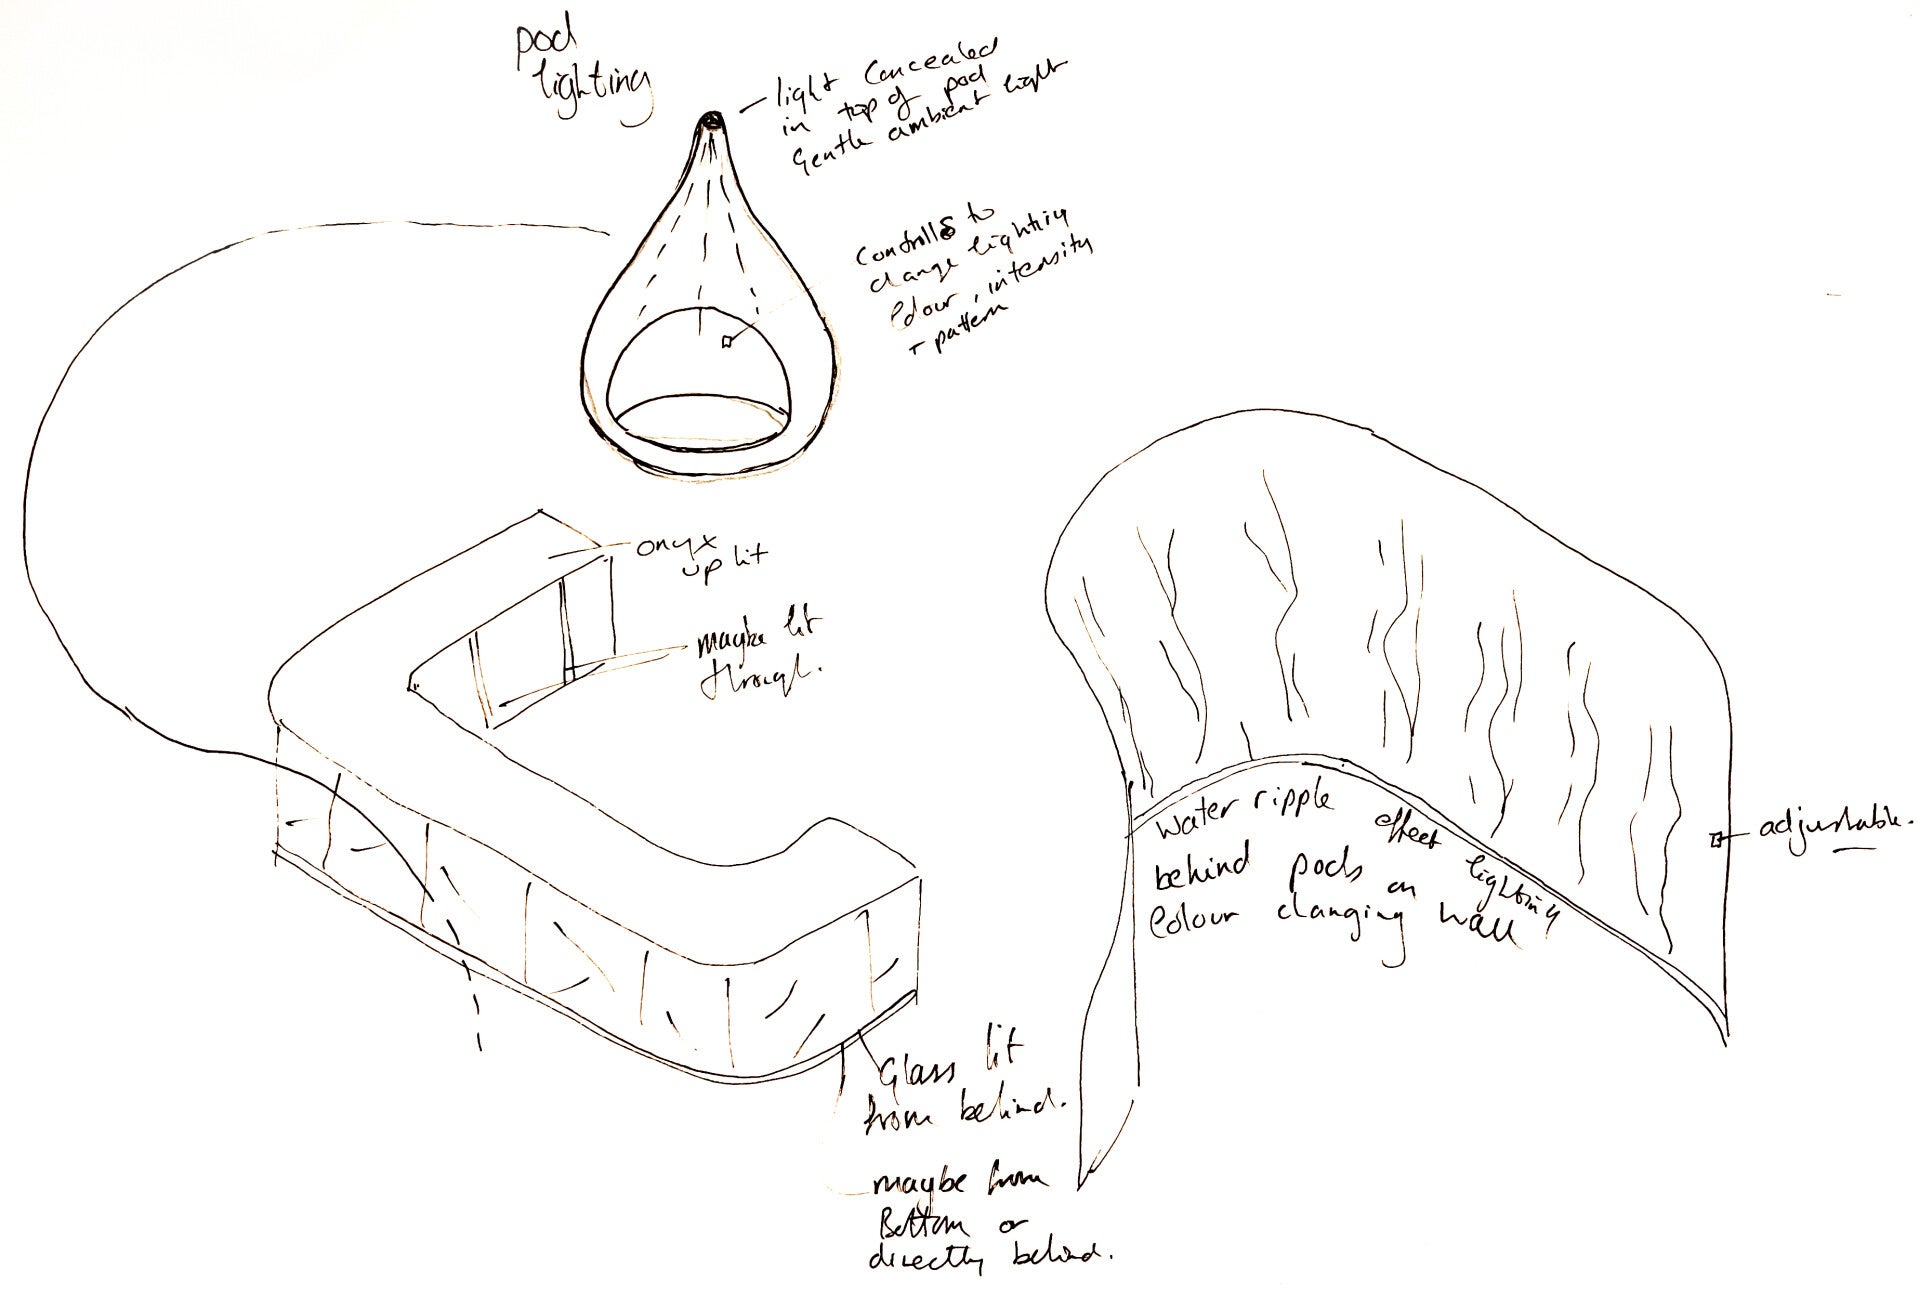 pod
lighting
light concealed
in top of pod
Gentle ambient light
Controlls to
change lighting
Colour, intensity
+ pattern
onyx
up lit
maybe lit
through.
water ripple effect lighting
behind pods on
Colour changing wall
adjustable.
Glass lit
from behind.
maybe from
Bottom or
directly behind.